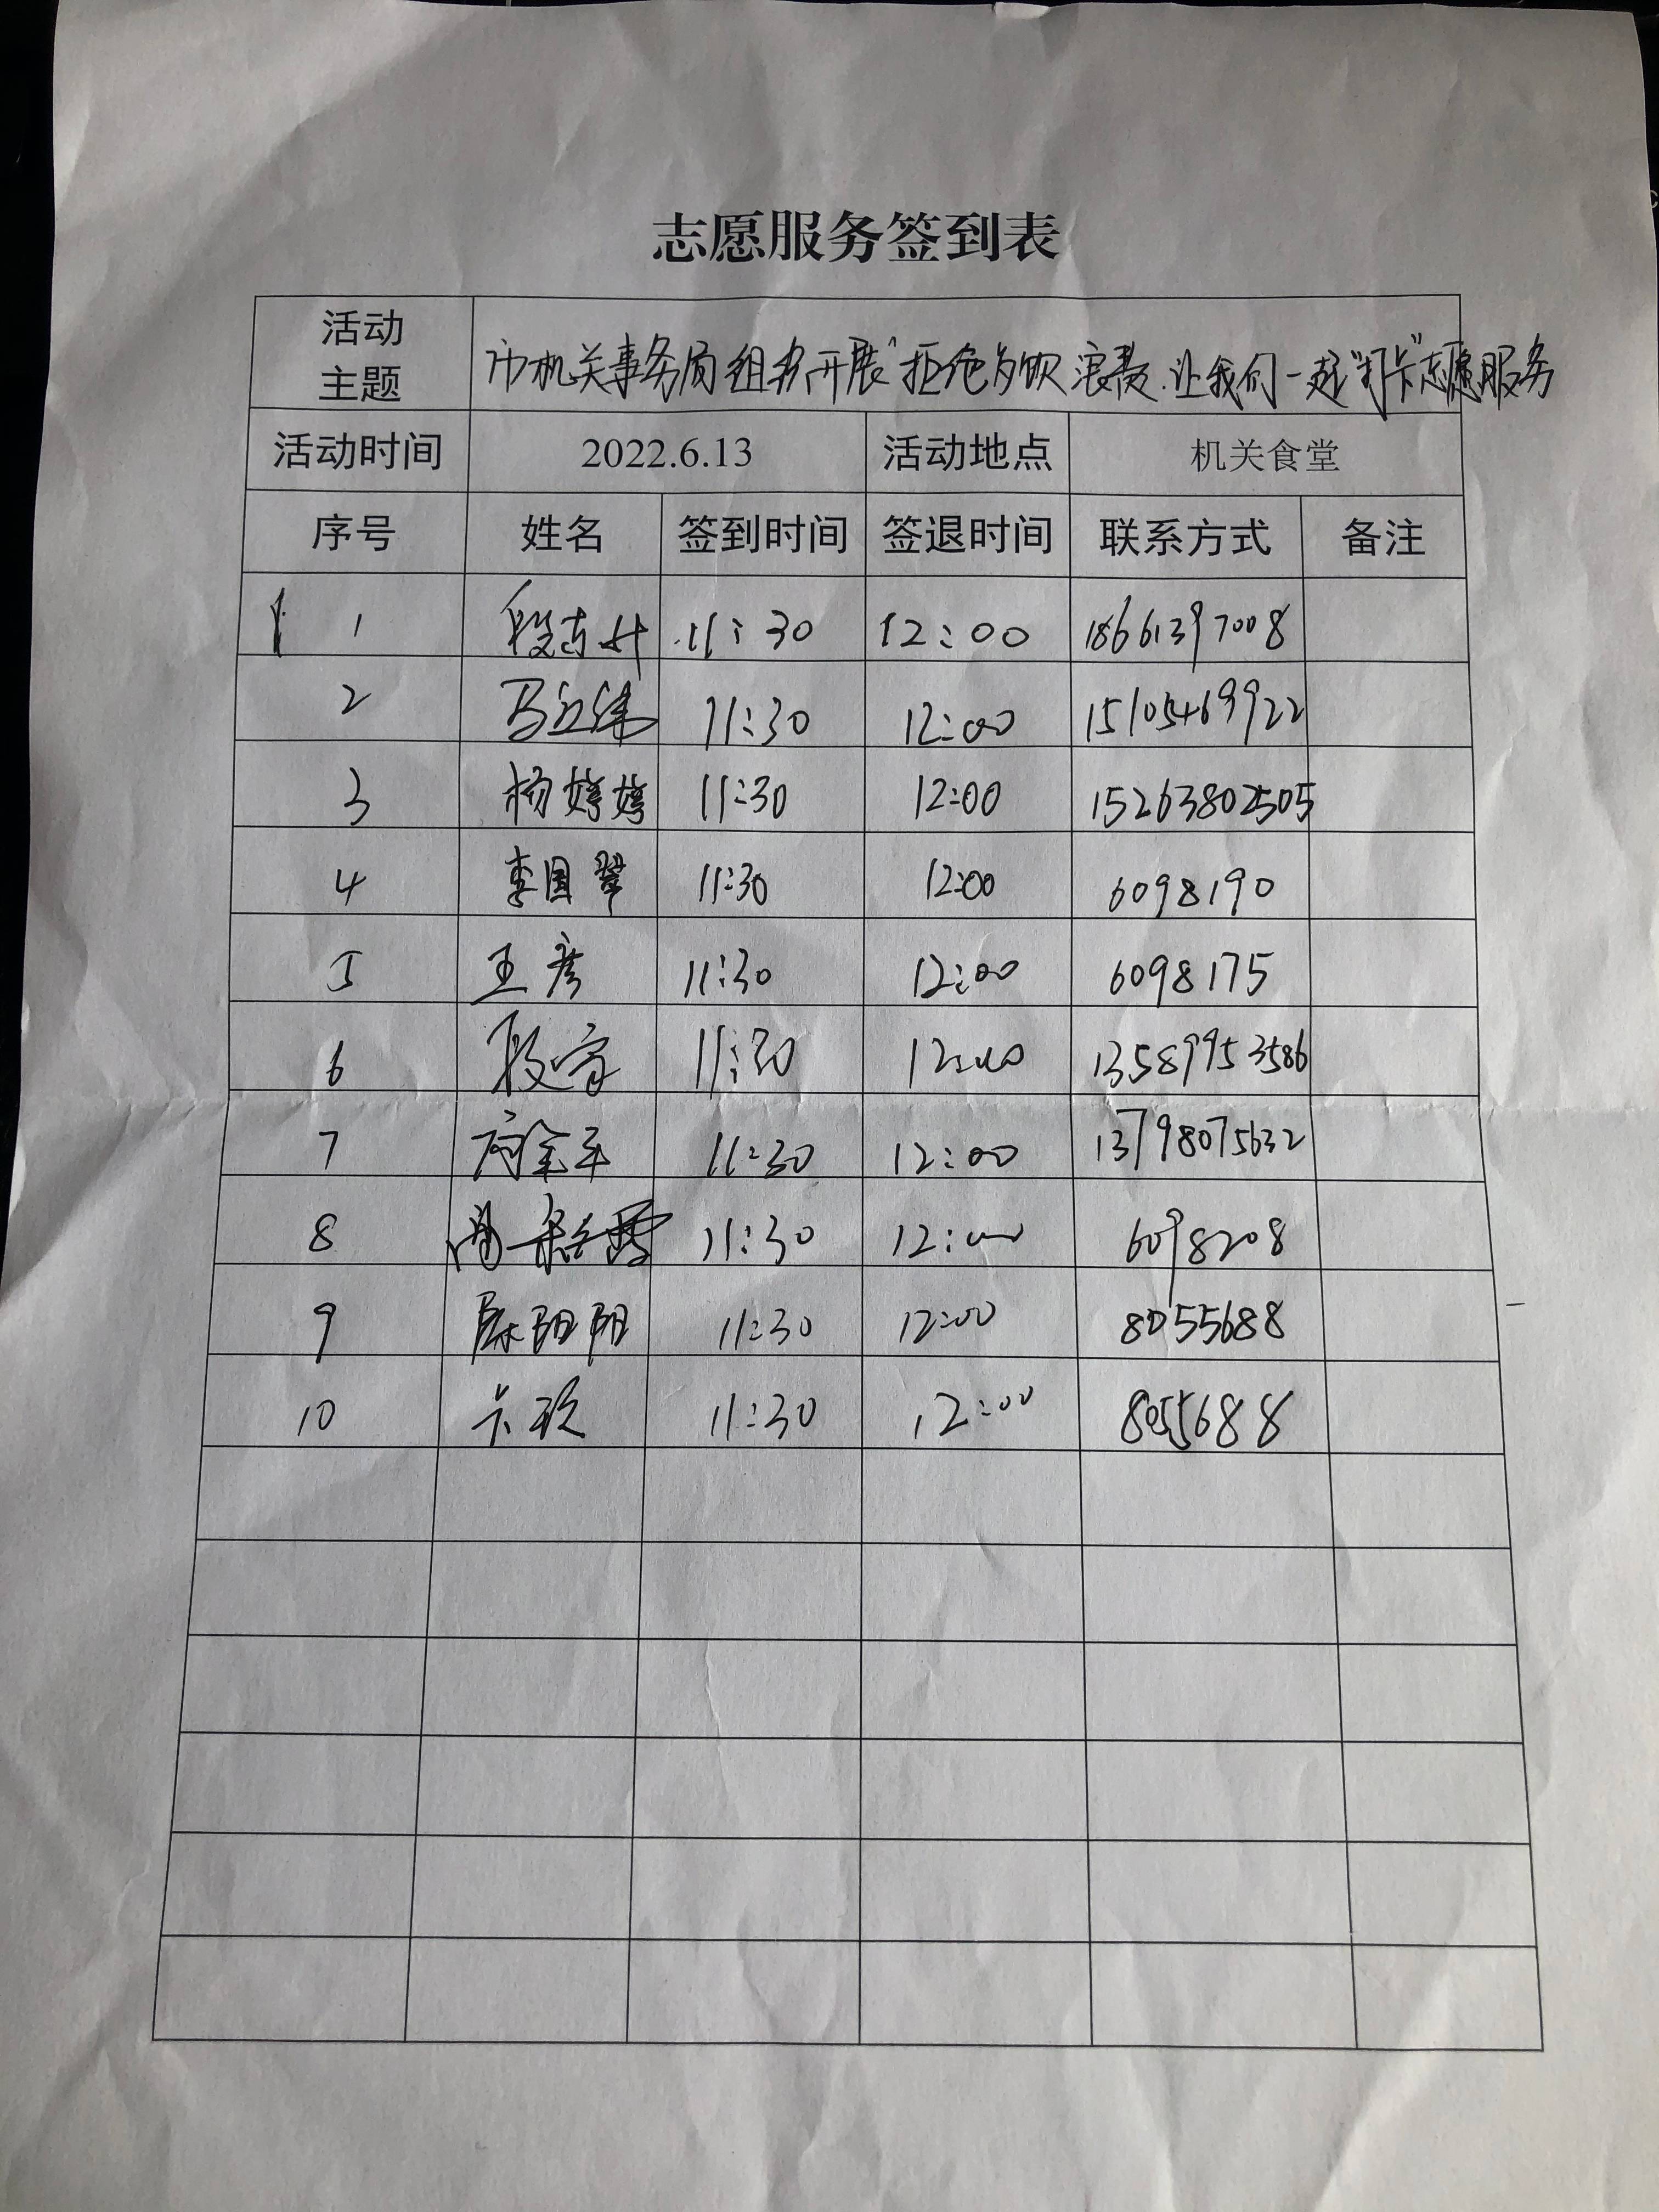 志愿服务签到表
活动 主题 市机关事务局组织开展"拒绝 浪费.让我们一起"打卡"志愿服务
活动时间 2022.6.13 活动地点 机关食堂
序号 姓名 签到时间 签退时间 联系方式 备注
1 11:30 12:00 18661397008
2 11:30 12:00 15105469922
3 杨婷婷 11:30 12:00 15263802505
4 李国翠 11:30 12:00 6098190
5 王彦 11:30 12:00 6098175
6 11:30 12:00 13589953586
7 11:30 12:00 13798075632
8 11:30 12:00 6098208
9 陈阳阳 11:30 12:00 8055688
10 11:30 12:00 8055688